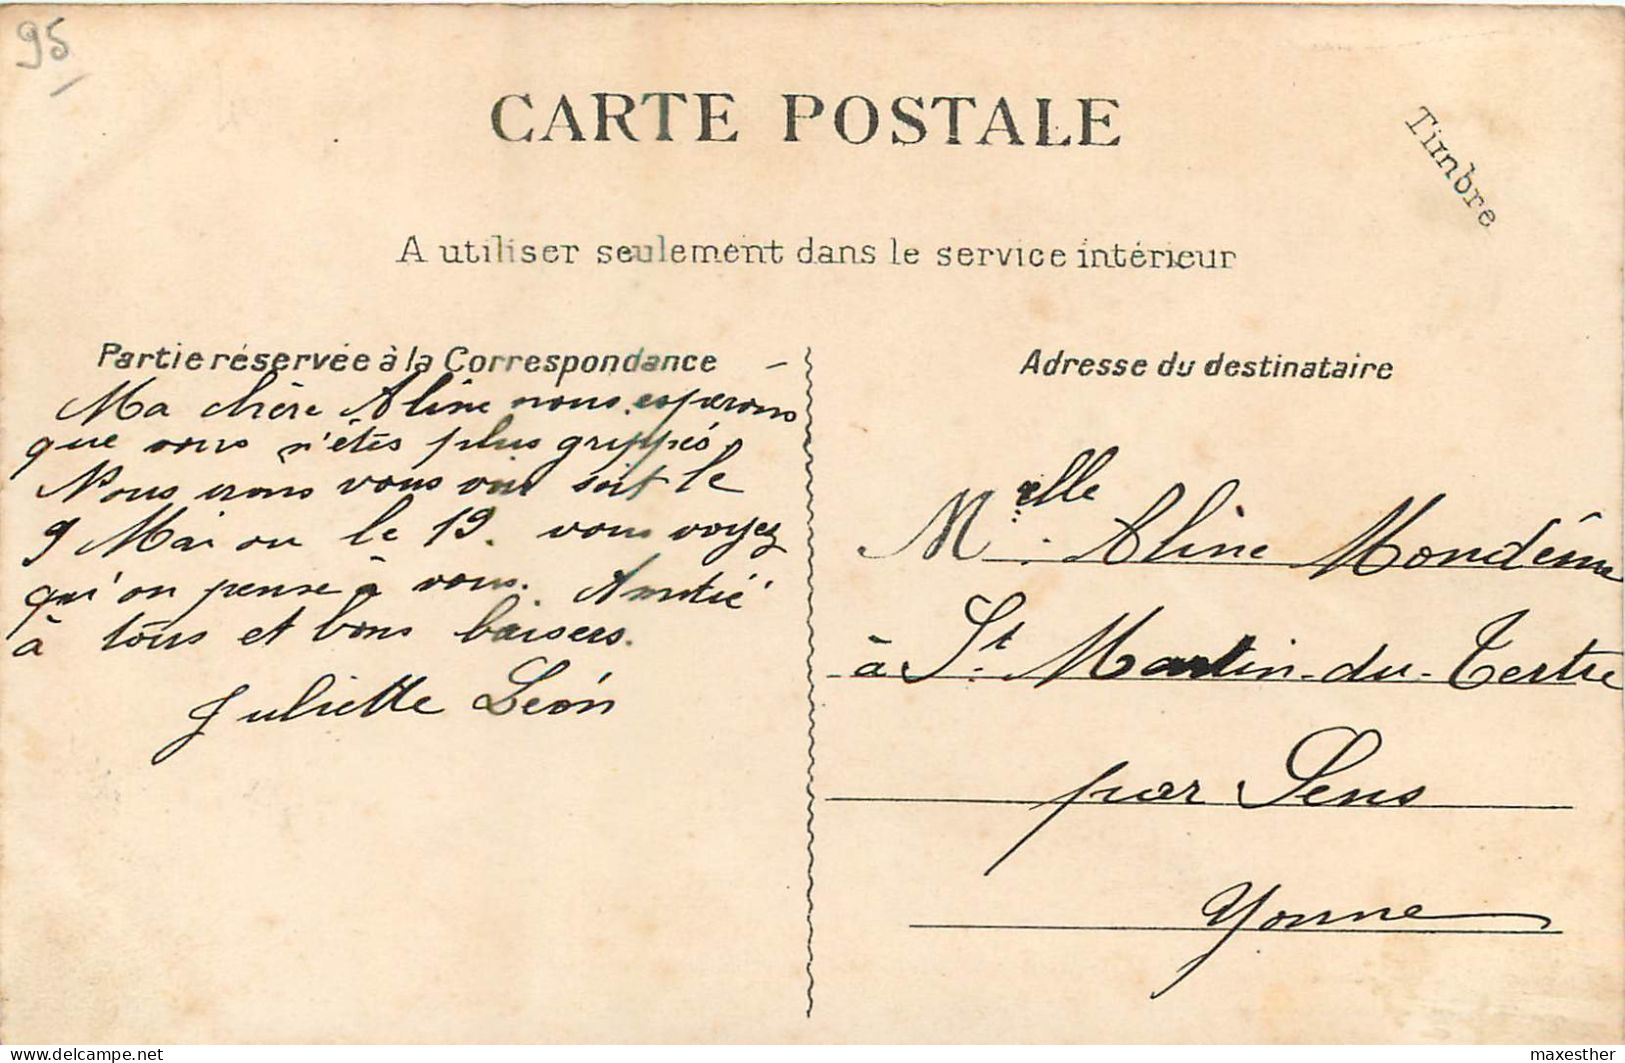 95
CARTE POSTALE
Timbre
A utiliser seulement dans le service intérieur
Partie réservée à la Correspondance
Ma chère Aline nous esperons
que vous n'étes plus grippés
Nous irons vous voir soit le
9 Mai ou le 19. vous voyez
qu'on pense à vous. Amitié
à tous et bons baisers.
Juliette Léon
Adresse du destinataire
Melle Aline Mondém
à St. Martin-du-Tertre
par Sens
Yonne
www.delcampe.net
maxesther